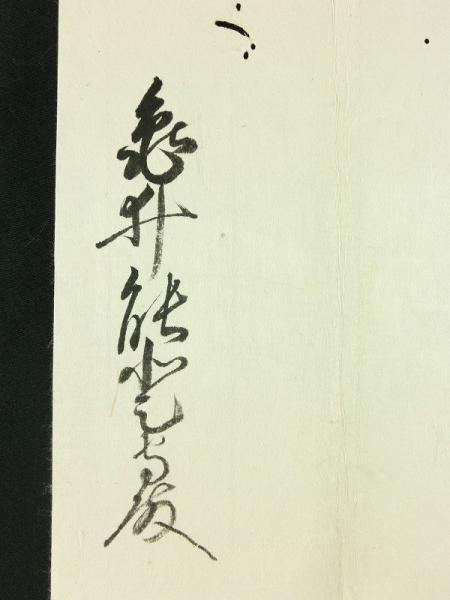 亀井能登守殿